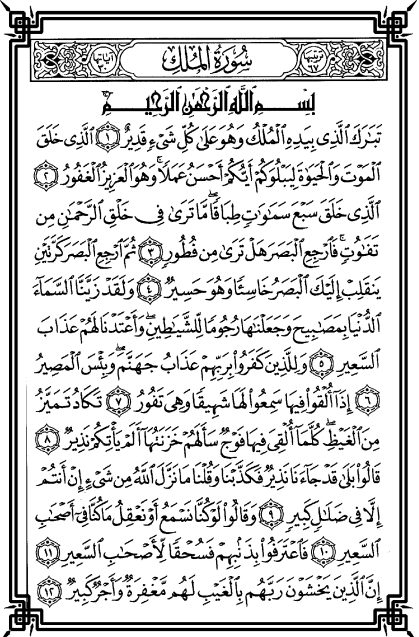 ترتيبها ٦٧ سُورَةُ المُلْكِ آياتها ٣٠
بِسْمِ اللَّهِ الرَّحْمَٰنِ الرَّحِيمِ
تَبَارَكَ الَّذِي بِيَدِهِ الْمُلْكُ وَهُوَ عَلَىٰ كُلِّ شَيْءٍ قَدِيرٌ ١ الَّذِي خَلَقَ
الْمَوْتَ وَالْحَيَوٰةَ لِيَبْلُوَكُمْ أَيُّكُمْ أَحْسَنُ عَمَلًا ۚ وَهُوَ الْعَزِيزُ الْغَفُورُ ٢
الَّذِي خَلَقَ سَبْعَ سَمَٰوَٰتٍ طِبَاقًا ۖ مَّا تَرَىٰ فِي خَلْقِ الرَّحْمَٰنِ مِن
تَفَٰوُتٍ ۖ فَارْجِعِ الْبَصَرَ هَلْ تَرَىٰ مِن فُطُورٍ ٣ ثُمَّ ارْجِعِ الْبَصَرَ كَرَّتَيْنِ
يَنقَلِبْ إِلَيْكَ الْبَصَرُ خَاسِئًا وَهُوَ حَسِيرٌ ٤ وَلَقَدْ زَيَّنَّا السَّمَاءَ
الدُّنْيَا بِمَصَٰبِيحَ وَجَعَلْنَٰهَا رُجُومًا لِّلشَّيَٰطِينِ ۖ وَأَعْتَدْنَا لَهُمْ عَذَابَ
السَّعِيرِ ٥ وَلِلَّذِينَ كَفَرُوا بِرَبِّهِمْ عَذَابُ جَهَنَّمَ ۖ وَبِئْسَ الْمَصِيرُ
٦ إِذَا أُلْقُوا فِيهَا سَمِعُوا لَهَا شَهِيقًا وَهِيَ تَفُورُ ٧ تَكَادُ تَمَيَّزُ
مِنَ الْغَيْظِ ۖ كُلَّمَا أُلْقِيَ فِيهَا فَوْجٌ سَأَلَهُمْ خَزَنَتُهَا أَلَمْ يَأْتِكُمْ نَذِيرٌ ٨
قَالُوا بَلَىٰ قَدْ جَاءَنَا نَذِيرٌ فَكَذَّبْنَا وَقُلْنَا مَا نَزَّلَ اللَّهُ مِن شَيْءٍ إِنْ أَنتُمْ
إِلَّا فِي ضَلَٰلٍ كَبِيرٍ ٩ وَقَالُوا لَوْ كُنَّا نَسْمَعُ أَوْ نَعْقِلُ مَا كُنَّا فِي أَصْحَابِ
السَّعِيرِ ١٠ فَاعْتَرَفُوا بِذَنبِهِمْ فَسُحْقًا لِّأَصْحَابِ السَّعِيرِ ١١
إِنَّ الَّذِينَ يَخْشَوْنَ رَبَّهُم بِالْغَيْبِ لَهُم مَّغْفِرَةٌ وَأَجْرٌ كَبِيرٌ ١٢